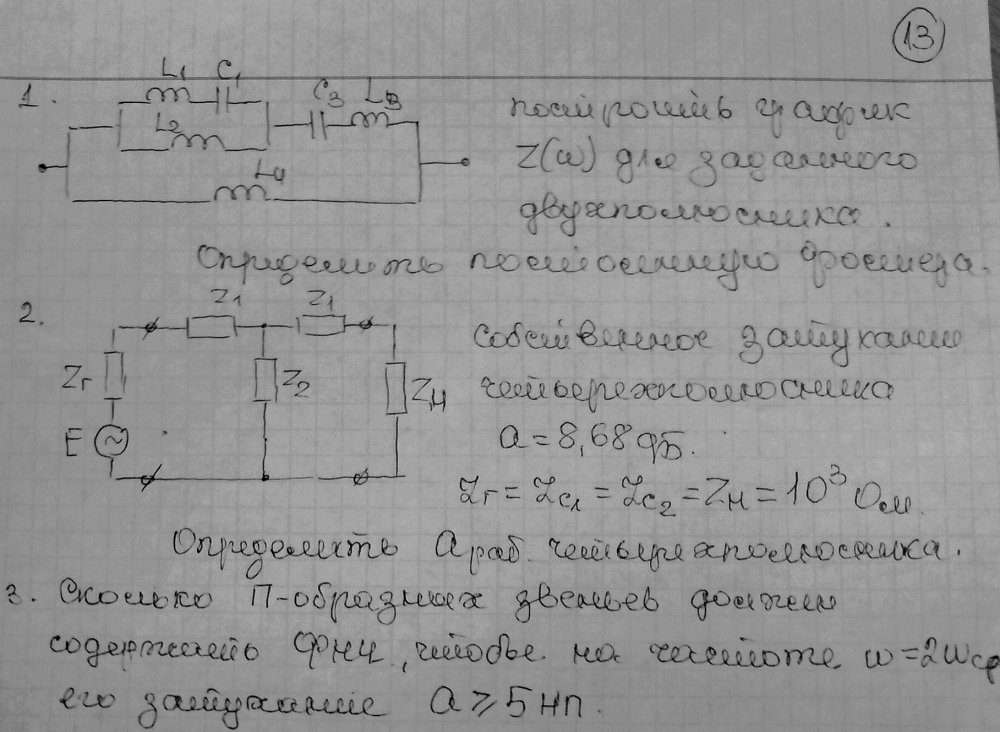 13
1.
L1 C1
L2
C3 L3
L4
построить график
Z(ω) для заданного
двухполюсника.
Определить постоянную Фостера.
2.
Z1 Z1
Zг Z2 Zн
E ~
собственное затухание
четырехполюсника
a = 8,68 дБ.
Zг = Zc1 = Zc2 = Zн = 10³ Ом.
Определить aраб. четырехполюсника.
3. Сколько П-образных звеньев должен
содержать ФНЧ, чтобы на частоте ω = 2ωср
его затухание a ⩾ 5 Нп.